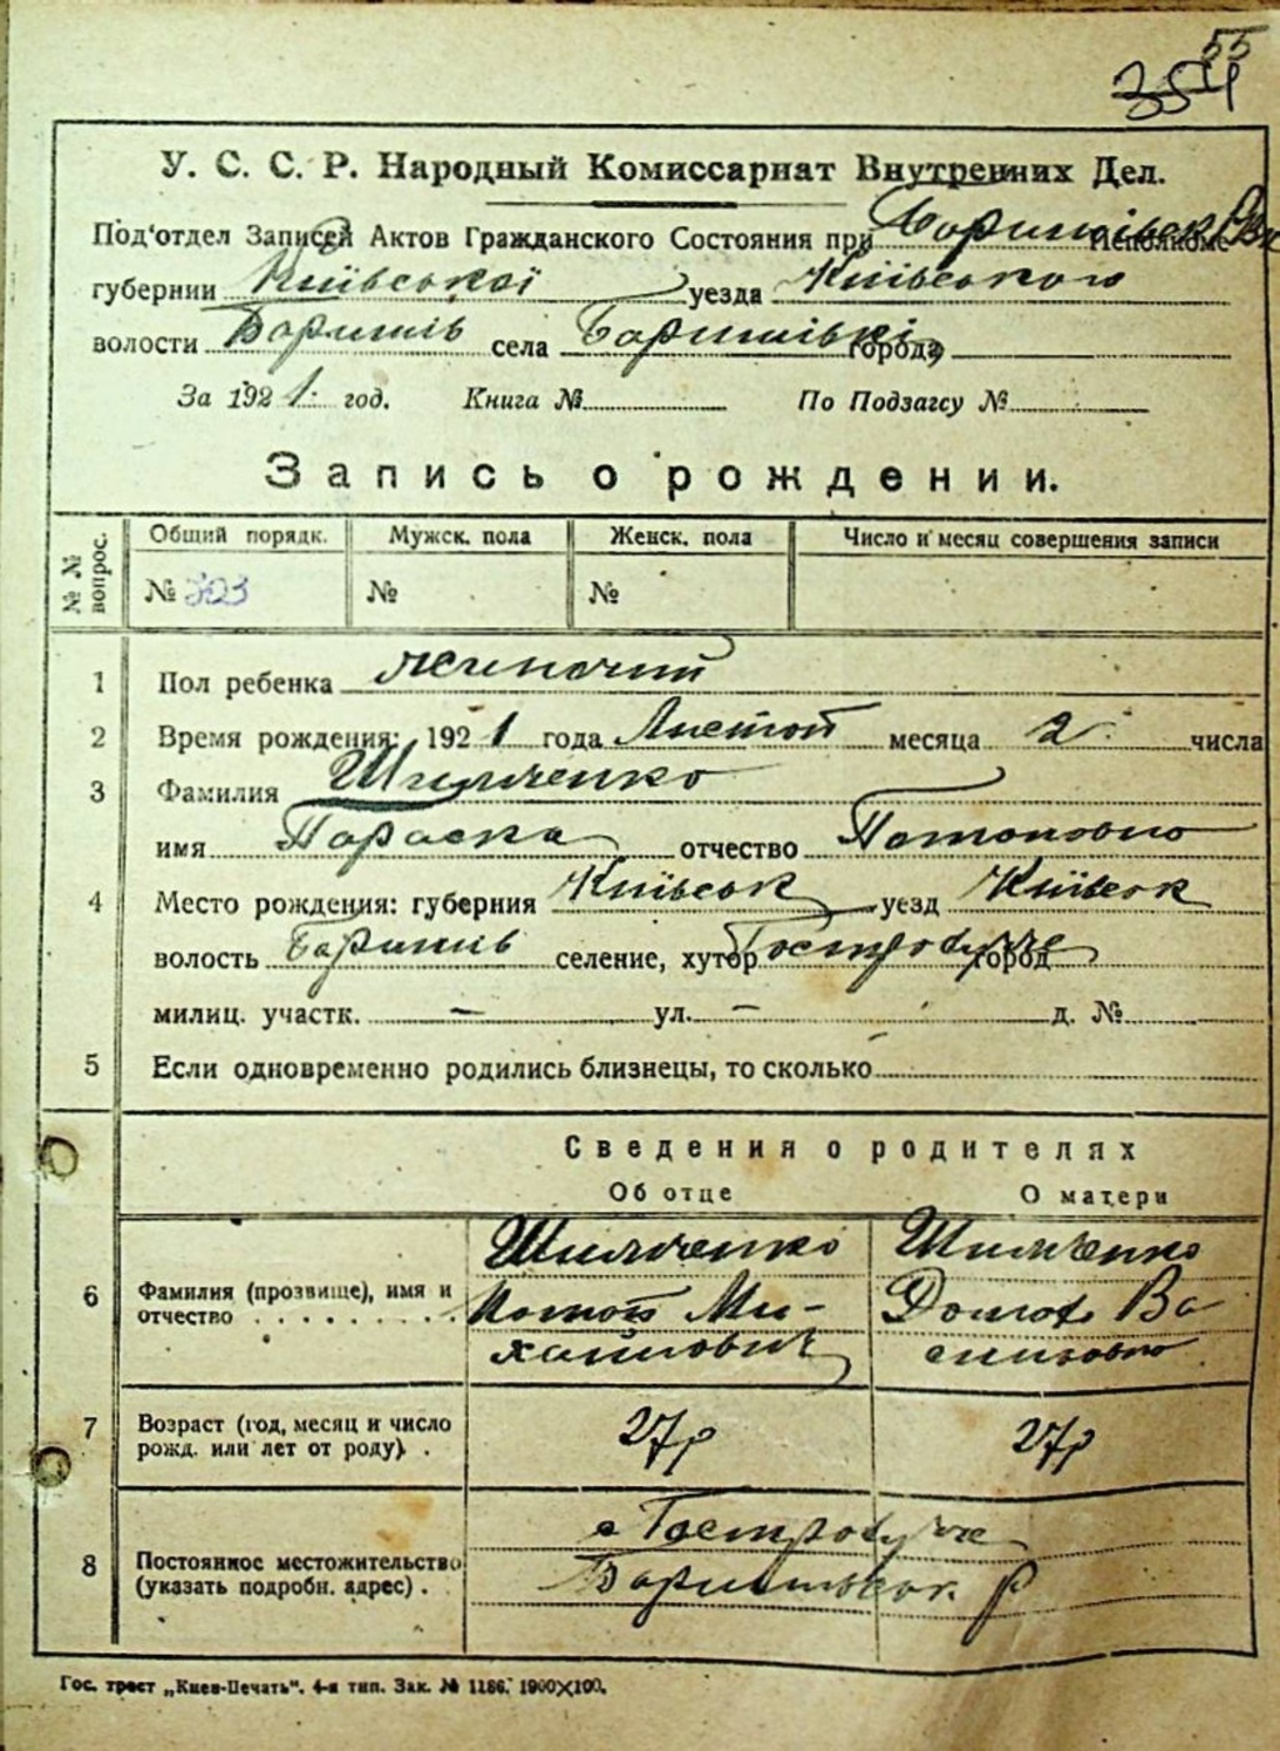 55
354
У. С. С. Р. Народный Комиссариат Внутренних Дел.
Под'отдел Записей Актов Гражданского Состояния при Баришівськ Исполкоме
губернии Київської уезда Київського
волости Баришів села Баришівкі города
За 1921 год. Книга № По Подзагсу №
Запись о рождении.
№ № вопрос. Общий порядк. Мужск. пола Женск. пола Число и месяц совершения записи
№ 323 № №
1 Пол ребенка жиночий
2 Время рождения: 1921 года Листоп месяца 2 числа
3 Фамилия Шимченко
имя Параска отчество Потаповно
4 Место рождения: губерния Київськ уезд Київськ
волость Баришів селение, хутор Гостролуччє город
милиц. участк. — ул. — д. №
5 Если одновременно родились близнецы, то сколько
Сведения о родителях
Об отце О матери
6 Фамилия (прозвище), имя и отчество . . . . . . . . . .
Шимченко Потап Михайлович
Шимченко Домаха Василівно
7 Возраст (год, месяц и число рожд. или лет от роду) . 27р 27р
8 Постоянное местожительство (указать подробн. адрес) .
с Гостролуччє
Баришівськ. р
Гос. трест „Киев-Печать“. 4-я тип. Зак. № 1186. 1900×100.